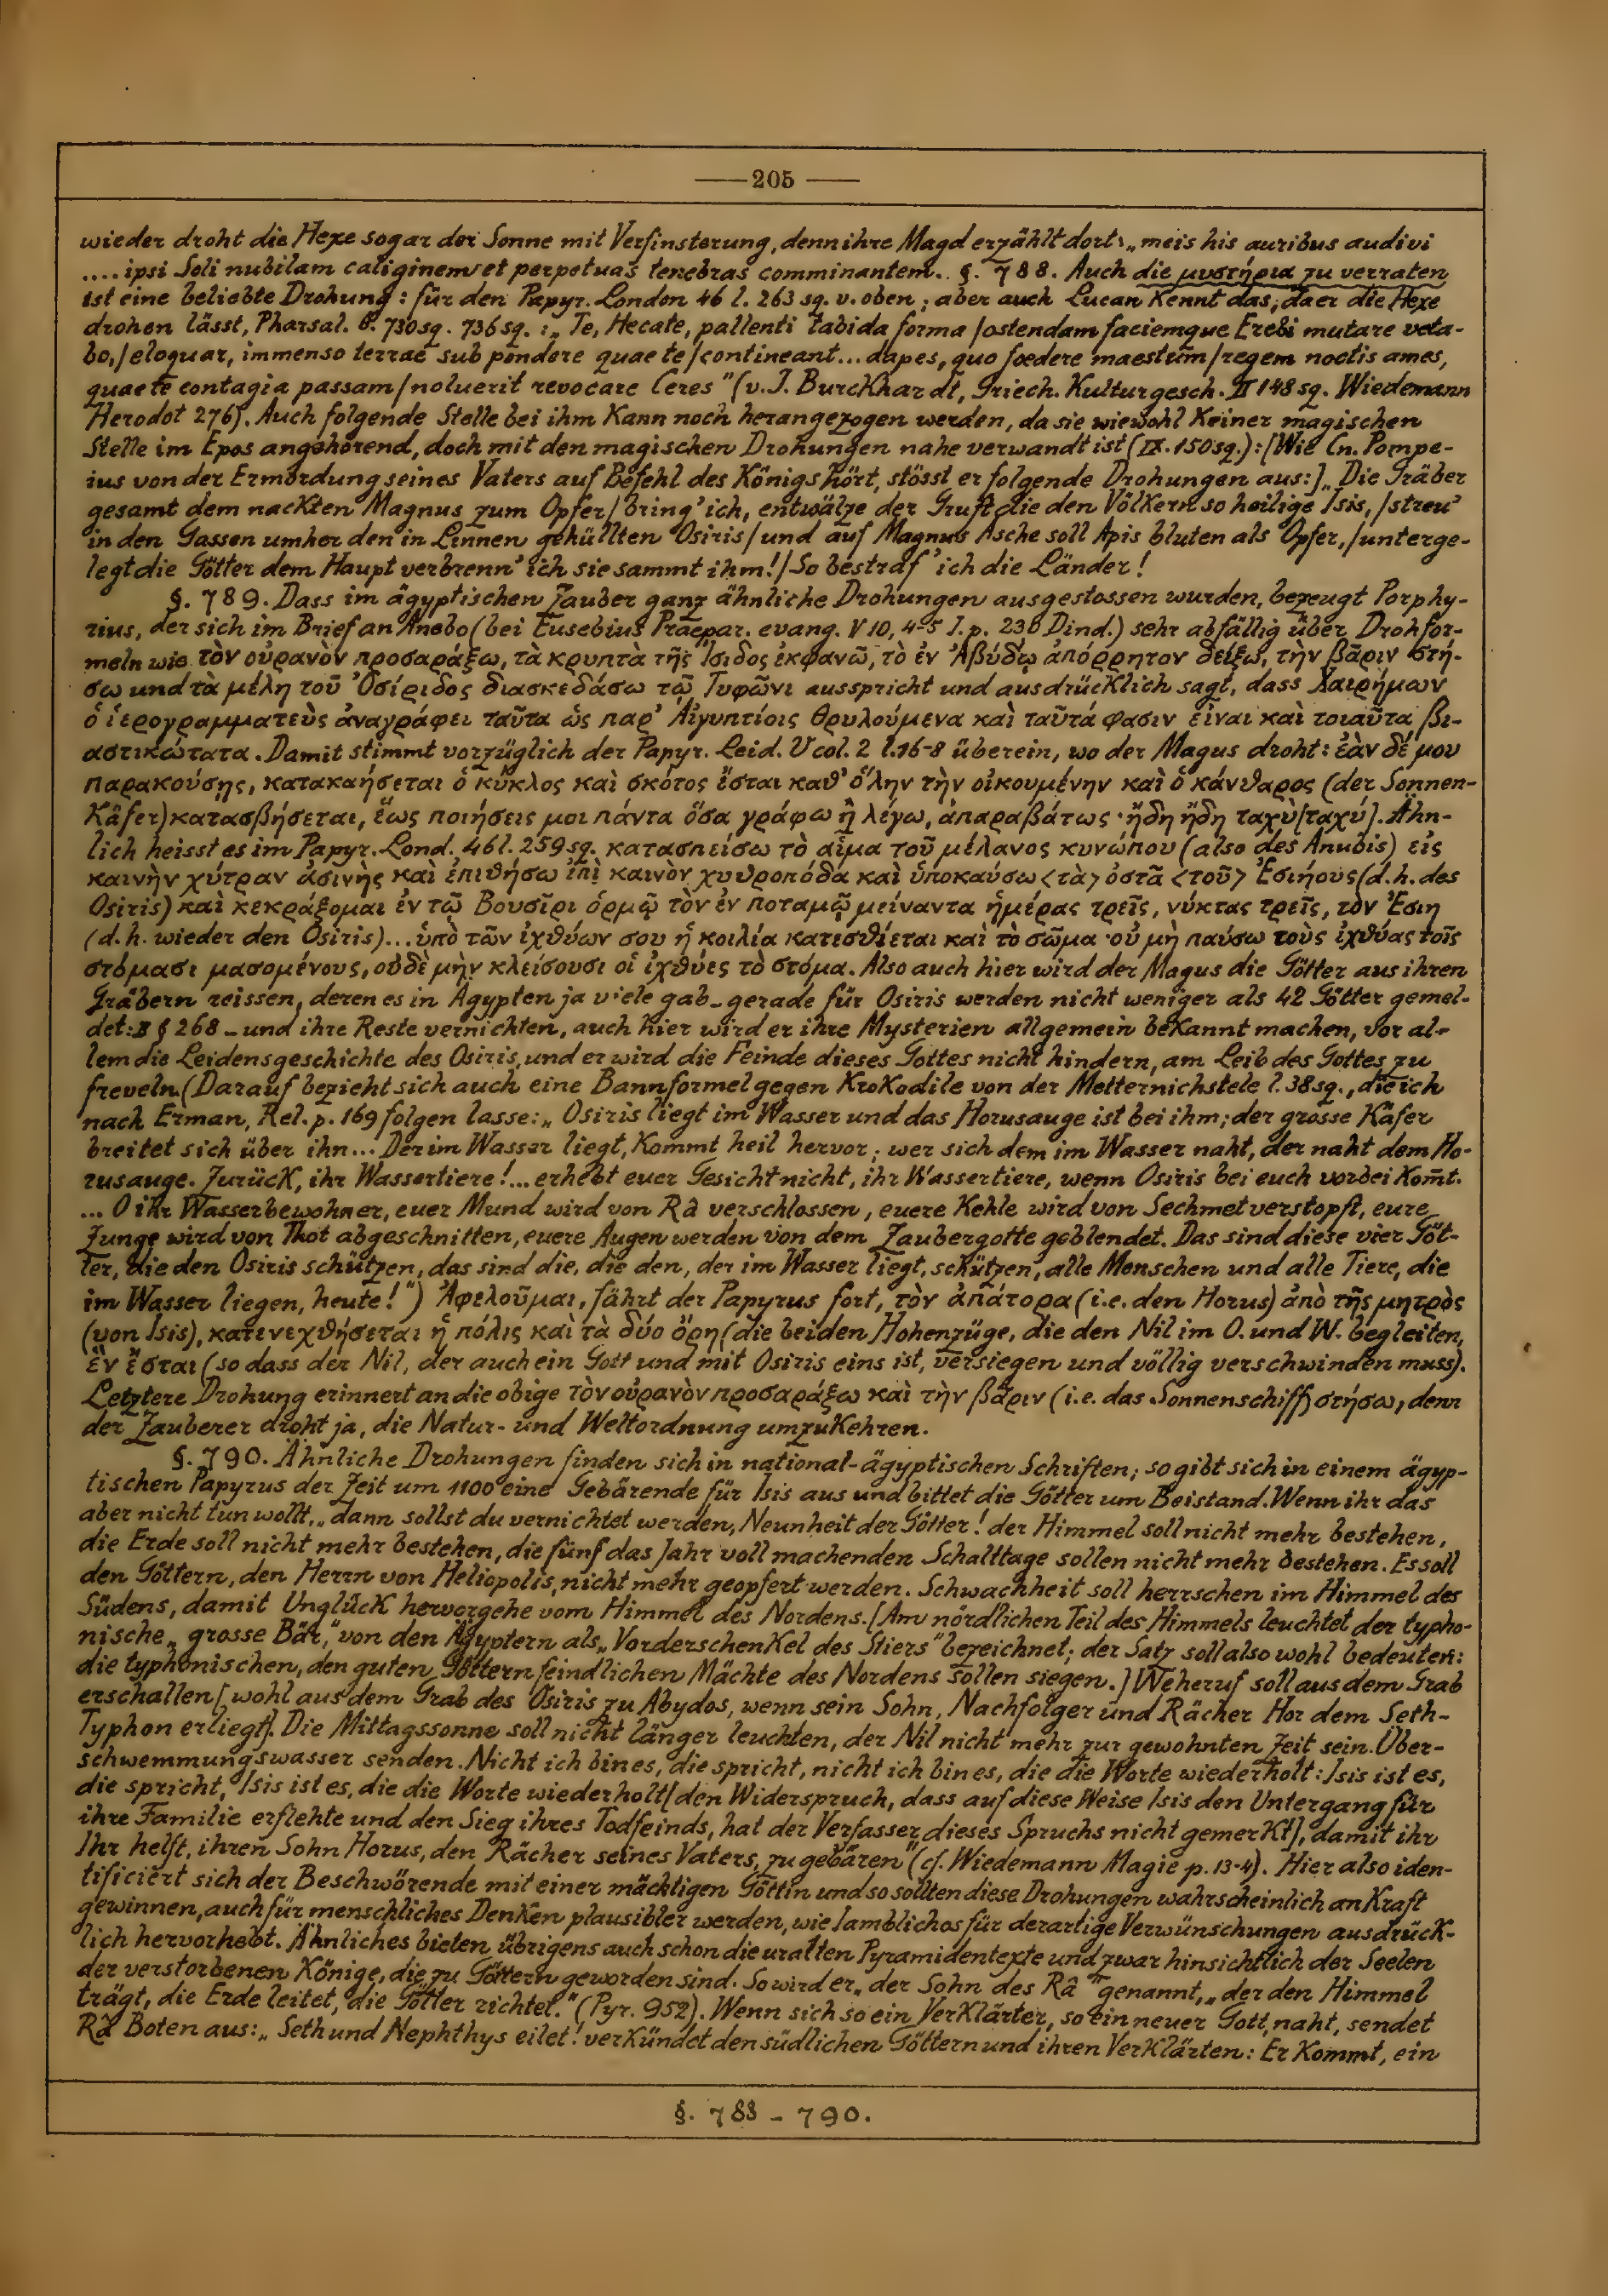 —205—
wieder droht die Hexe sogar der Sonne mit Verfinsterung, denn ihre Magd erzählt dort: „meis his auribus audivi
.... ipsi Soli nubilam caliginem et perpetuas tenebras comminantem. §. 788. Auch die μυστήρια zu verraten
ist eine beliebte Drohung: für den Papyr. London 46 l. 263 sq. v. oben; aber auch Lucan kennt das, da er die Hexe
drohen lässt, Pharsal. 6. 730sq. 736sq.: „Te, Hecate, pallenti tabida forma / ostendam faciemque Erebi mutare veta-
bo, / eloquar, immenso terrae sub pondere quae te / contineant... dapes, quo foedere maestum / regem noctis ames,
quae te contagia passam / noluerit revocare Ceres" (v. J. Burckhardt, Griech. Kulturgesch. II 148 sq. Wiedemann
Herodot 276). Auch folgende Stelle bei ihm kann noch herangezogen werden, da sie wiewohl keiner magischen
Stelle im Epos angehörend, doch mit den magischen Drohungen nahe verwandt ist (IX. 150sq.): [Wie Cn. Pompe-
ius von der Ermordung seines Vaters auf Befehl des Königs hört, stösst er folgende Drohungen aus:] „Die Gräber
gesamt dem nackten Magnus zum Opfer / bring' ich, entwälze der Gruft die den Völkern so heilige Isis, / streu'
in den Gassen umher den in Linnen gehüllten Osiris / und auf Magnus Asche soll Apis bluten als Opfer, / unterge-
legt die Götter dem Haupt verbrenn' ich sie sammt ihm! / So bestraf' ich die Länder!
§. 789. Dass im ägyptischen Zauber ganz ähnliche Drohungen ausgestossen wurden, bezeugt Porphy-
rius, der sich im Brief an Anebo (bei Eusebius Praepar. evang. V 10, 4-5 I. p. 230 Dind.) sehr abfällig über Drohfor-
meln wie τὸν οὐρανὸν προσαράξω, τὰ κρυπτὰ τῆς Ἴσιδος ἐκφανῶ, τὸ ἐν Ἀβύδῳ ἀπόρρητον δείξω, τὴν βᾶριν στή-
σω und τὰ μέλη τοῦ Ὀσίριδος διασκεδάσω τῷ Τυφῶνι ausspricht und ausdrücklich sagt, dass Χαιρήμων
ὁ ἱερογραμματεὺς ἀναγράφει ταῦτα ὡς παρ' Αἰγυπτίοις θρυλούμενα καὶ ταῦτά φασιν εἶναι καὶ τοιαῦτα βι-
αστικώτατα. Damit stimmt vorzüglich der Papyr. Leid. V col. 2 l. 16-8 überein, wo der Magus droht: ἐὰν δέ μου
παρακούσῃς, κατακαήσεται ὁ κύκλος καὶ σκότος ἔσται καθ' ὅλην τὴν οἰκουμένην καὶ ὁ κάνθαρος (der Sonnen-
Käfer) κατασβήσεται, ἕως ποιήσεις μοι πάντα ὅσα γράφω ἢ λέγω, ἀπαραβάτως · ἤδη ἤδη ταχὺ [ταχύ]. Ähn-
lich heisst es im Papyr. Lond. 46 l. 259 sq. κατασπείσω τὸ αἷμα τοῦ μέλανος κυνώπου (also des Anubis) εἰς
καινὴν χύτραν ἀσινῆς καὶ ἐπιθήσω ἐπὶ καινὸν χυθροπόδα καὶ ὑποκαύσω <τὰ> ὀστᾶ <τοῦ> Ἐσιήους (d. h. des
Osiris) καὶ κεκράξομαι ἐν τῷ Βουσῖρι ὁρμῷ τὸν ἐν ποταμῷ μείναντα ἡμέρας τρεῖς, νύκτας τρεῖς, τὸν Ἐσιῆ
(d. h. wieder den Osiris)... ὑπὸ τῶν ἰχθύων σου ἡ κοιλία κατεσθίεται καὶ τὸ σῶμα · οὐ μὴ παύσω τοὺς ἰχθύας τοῖς
στόμασι μασομένους, οὐδὲ μὴν κλείσουσι οἱ ἰχθύες τὸ στόμα. Also auch hier wird der Magus die Götter aus ihren
Gräbern reissen, deren es in Ägypten ja viele gab – gerade für Osiris werden nicht weniger als 42 Götter gemel-
det: II § 268 – und ihre Reste vernichten, auch hier wird er ihre Mysterien allgemein bekannt machen, vor al-
lem die Leidensgeschichte des Osiris, und er wird die Feinde dieses Gottes nicht hindern, am Leib des Gottes zu
freveln. (Darauf bezieht sich auch eine Bannformel gegen Krokodile von der Metternichstele l. 38sq., die ich
nach Erman, Rel. p. 169 folgen lasse: „Osiris liegt im Wasser und das Horusauge ist bei ihm; der grosse Käfer
breitet sich über ihn... Der im Wasser liegt, kommt heil hervor; wer sich dem im Wasser naht, der naht dem Ho-
rusauge. Zurück, ihr Wassertiere!... erhebt euer Gesicht nicht, ihr Wassertiere, wenn Osiris bei euch vorbei kom̄t.
... O ihr Wasserbewohner, euer Mund wird von Râ verschlossen, euere Kehle wird von Sechmet verstopft, eure
Zunge wird von Thot abgeschnitten, euere Augen werden von dem Zaubergotte geblendet. Das sind diese vier Göt-
ter, die den Osiris schützen, das sind die, die den, der im Wasser liegt, schützen, alle Menschen und alle Tiere, die
im Wasser liegen, heute!") Ἀφελοῦμαι, fährt der Papyrus fort, τὸν ἀπάτορα (i. e. den Horus) ἀπὸ τῆς μητρὸς
(von Isis), κατενεχθήσεται ἡ πόλις καὶ τὰ δύο ὄρη (die beiden Höhenzüge, die den Nil im O. und W. begleiten,
ἓν ἔσται (so dass der Nil, der auch ein Gott und mit Osiris eins ist, versiegen und völlig verschwinden muss).
Letztere Drohung erinnert an die obige τὸν οὐρανὸν προσαράξω καὶ τὴν βᾶριν (i. e. das Sonnenschiff) στήσω, denn
der Zauberer droht ja, die Natur- und Weltordnung umzukehren.
§. 790. Ähnliche Drohungen finden sich in national-ägyptischen Schriften; so gibt sich in einem ägyp-
tischen Papyrus der Zeit um 1100 eine Gebärende für Isis aus und bittet die Götter um Beistand. Wenn ihr das
aber nicht tun wollt, „dann sollst du vernichtet werden, Neunheit der Götter! der Himmel soll nicht mehr bestehen,
die Erde soll nicht mehr bestehen, die fünf das Jahr voll machenden Schalttage sollen nicht mehr bestehen. Es soll
den Göttern, den Herrn von Heliopolis, nicht mehr geopfert werden. Schwachheit soll herrschen im Himmel des
Südens, damit Unglück hervorgehe vom Himmel des Nordens. [Am nördlichen Teil des Himmels leuchtet der typho-
nische „grosse Bär," von den Ägyptern als „Vorderschenkel des Stiers" bezeichnet; der Satz soll also wohl bedeuten:
die typhonischen, den guten Göttern feindlichen Mächte des Nordens sollen siegen.] Weheruf soll aus dem Grab
erschallen [wohl aus dem Grab des Osiris zu Abydos, wenn sein Sohn, Nachfolger und Rächer Hor dem Seth-
Typhon erliegt]. Die Mittagssonne soll nicht länger leuchten, der Nil nicht mehr zur gewohnten Zeit sein Über-
schwemmungswasser senden. Nicht ich bin es, die spricht, nicht ich bin es, die die Worte wiederholt: Isis ist es,
die spricht, Isis ist es, die die Worte wiederholt [den Widerspruch, dass auf diese Weise Isis den Untergang für
ihre Familie erflehte und den Sieg ihres Todfeinds, hat der Verfasser dieses Spruchs nicht gemerkt], damit ihr
Ihr helft, ihren Sohn Horus, den Rächer seines Vaters, zu gebären" (cf. Wiedemann Magie p. 13-4). Hier also iden-
tificiert sich der Beschwörende mit einer mächtigen Göttin und so sollten diese Drohungen wahrscheinlich an Kraft
gewinnen, auch für menschliches Denken plausibler werden, wie Iamblichos für derartige Verwünschungen ausdrück-
lich hervorhebt. Ähnliches bieten übrigens auch schon die uralten Pyramidentexte und zwar hinsichtlich der Seelen
der verstorbenen Könige, die zu Göttern geworden sind. So wird er „der Sohn des Râ" genannt, „der den Himmel
trägt, die Erde leitet, die Götter richtet." (Pyr. 952). Wenn sich so ein Verklärter, so ein neuer Gott, naht, sendet
Râ Boten aus: „Seth und Nephthys eilet! verkündet den südlichen Göttern und ihren Verklärten: Er kommt, ein
§. 788 - 790.